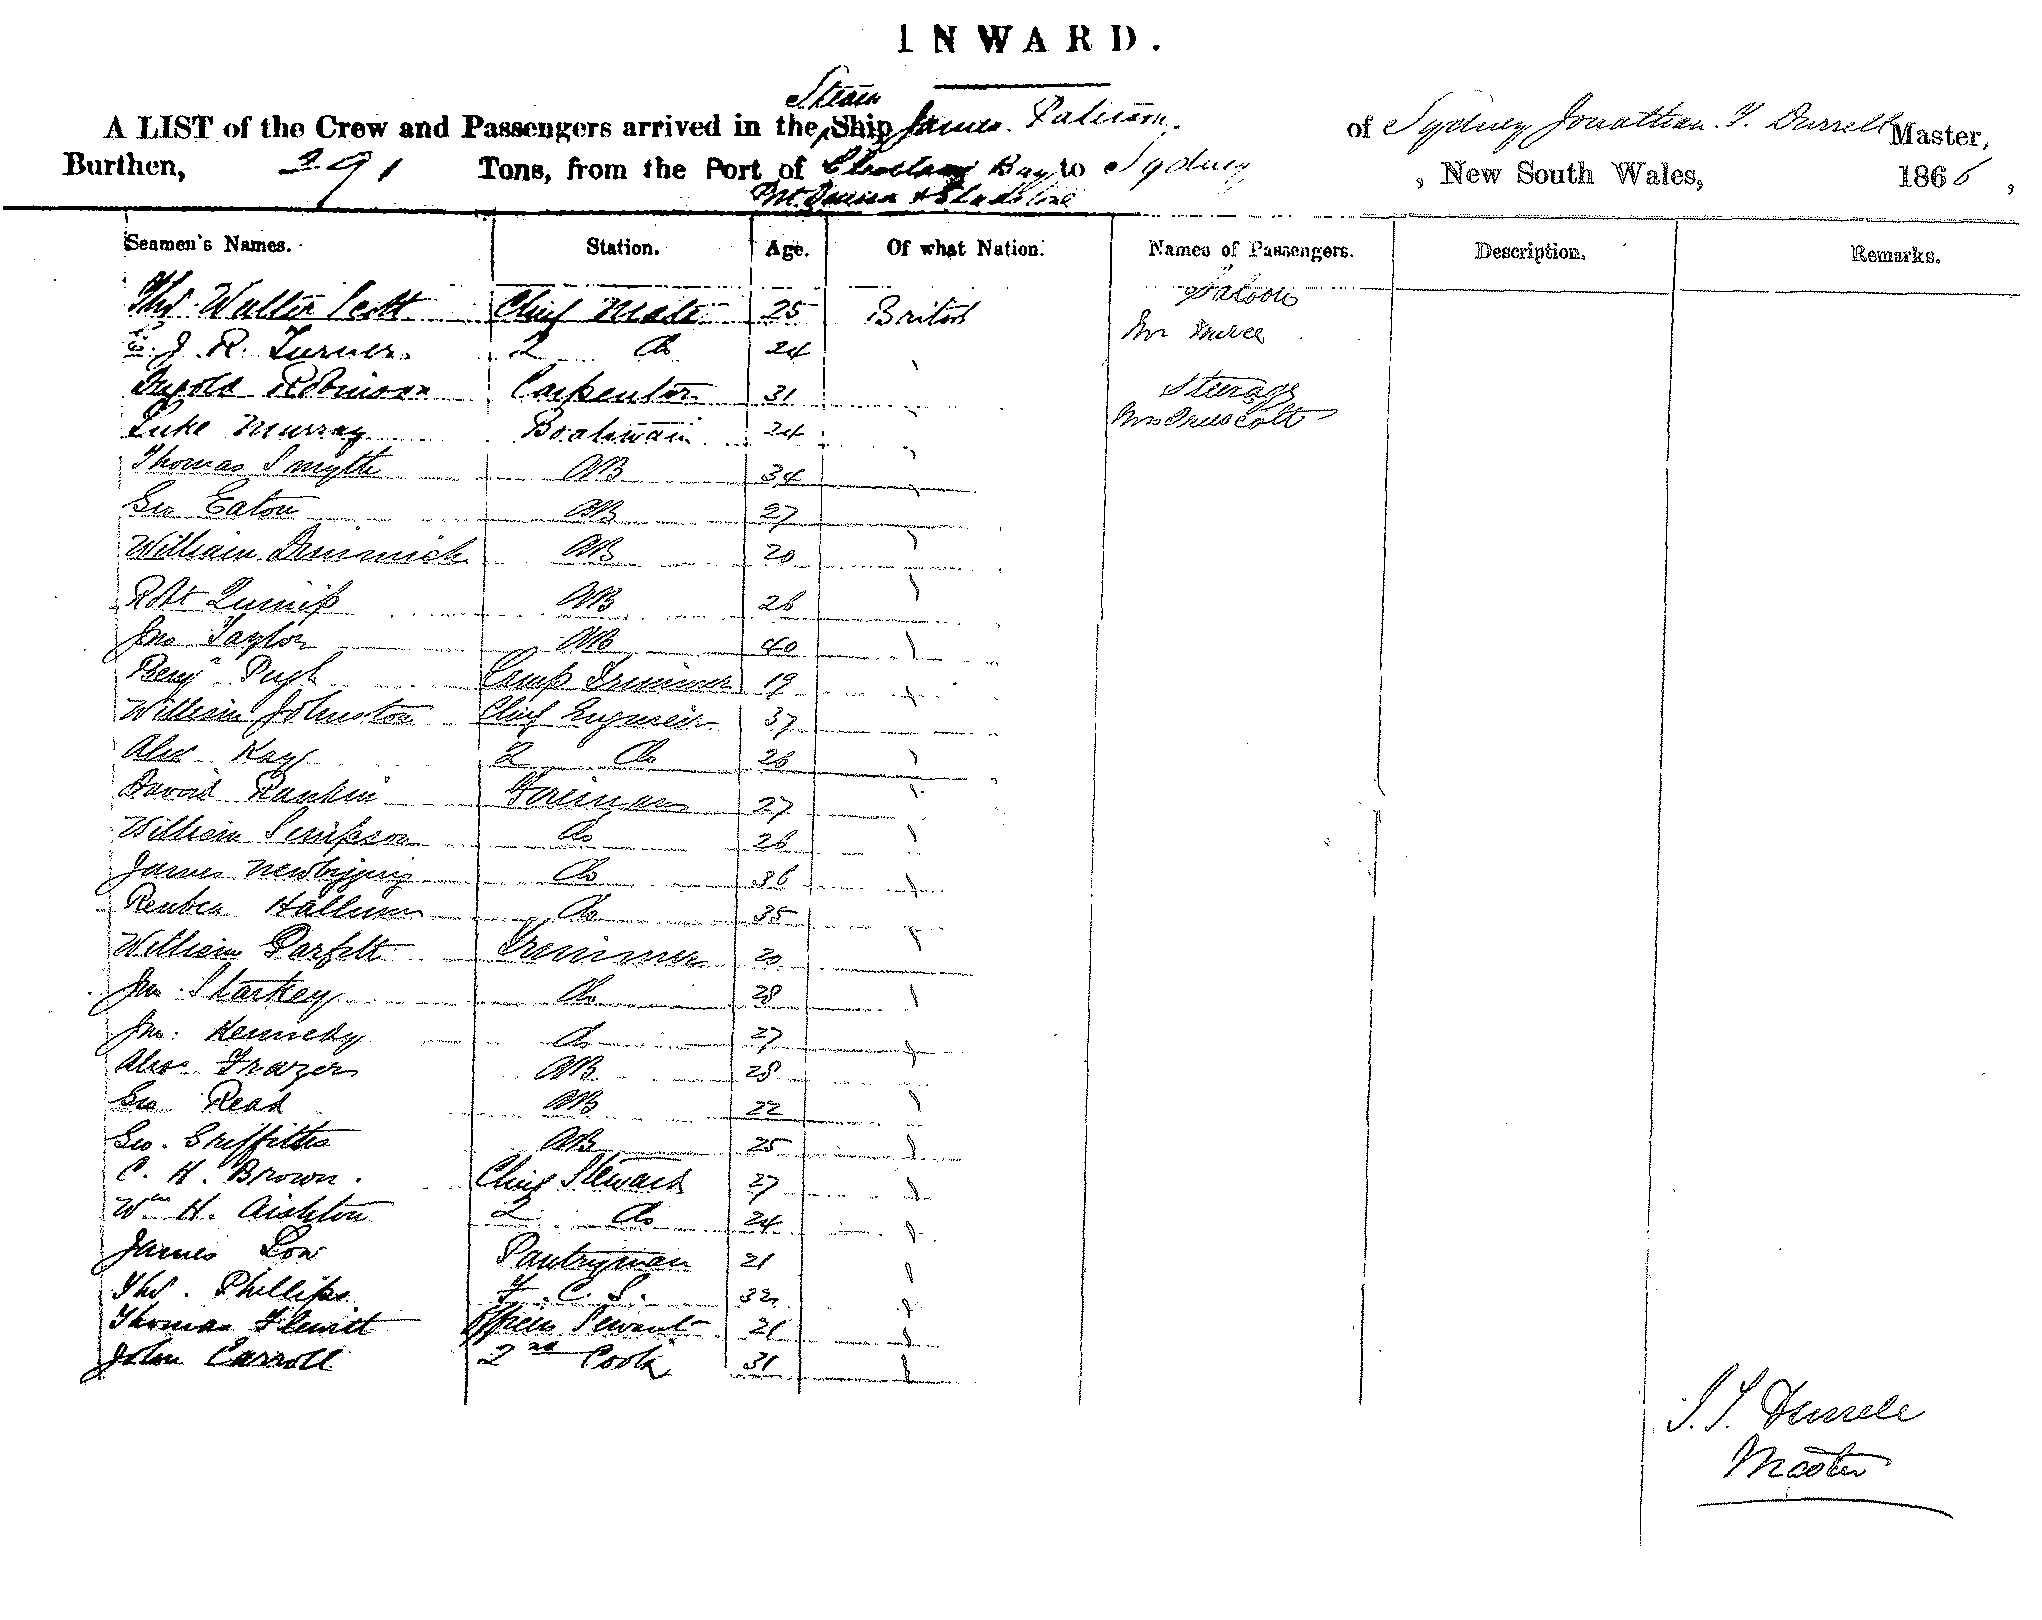 INWARD.
Steam
A LIST of the Crew and Passengers arrived in the Ship James Paterson. of Sydney Jonathan T. Durrell Master,
Burthen, 391 Tons, from the Port of Cleveland Bay to Sydney, New South Wales, 1866,
Seamen's Names. Station. Age. Of what Nation. Names of Passengers. Description. Remarks.
Saloon
Thos. Walter Scott Chief Mate 25 British
J. R. Turner 2 Do 24 Mr
Robinson Carpenter 31 Steerage
Luke Murray Boatswain 24 Mrs Truscott
Thomas Smyth AB 34
Geo Eaton AB 27
William Dimmick AB 20
Robt AB 26
Jno Taylor AB 40
Benj Pugh Lamp Trimmer 19
William Johnston Chief Engineer 37
Alex Kay 2 Do 26
David Rankin Fireman 27
William Simpson Do 26
James Newbigging Do 36
Reuben Hallum Do 35
William Parfitt Trimmer 20
Jno Starkey Do 28
Jno. Kennedy Do 27
Alex Frazer AB 28
Geo Read AB 22
Geo. Griffiths AB 25
C. H. Brown. Chief Steward 27
Wm H. Aishton 2 Do 24
James Low Pantryman 21
Thos. Phillips F. C. S. 32
Thomas Flewitt Officers Servant 21
John Carroll 2nd Cook 31
J. T. Durrell
Master